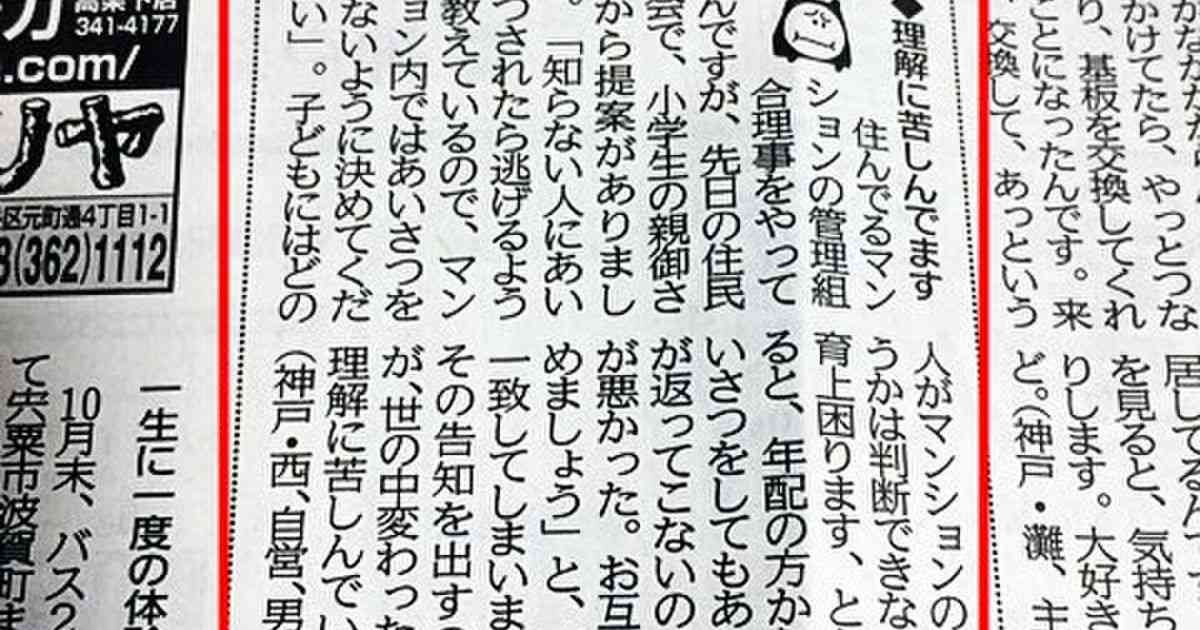 かけてたら、やっとつな
り、基板を交換してくれ
ことになったんです。来
交換して、あっという
居してるん
を見ると、気持ち
りします。大好き
ど。(神戸・灘、主
◆理解に苦しんでます
住んでるマン
ションの管理組
合理事をやって
んですが、先日の住民
会で、小学生の親御さ
から提案がありまし
。「知らない人にあい
つされたら逃げるよう
教えているので、マン
ョン内ではあいさつを
ないように決めてくだ
い」。子どもにはどの
人がマンションの
うかは判断できな
育上困ります、と
ると、年配の方か
いさつをしてもあ
が返ってこないの
が悪かった。お互
めましょう」と、
一致してしまいま
その告知を出すの
が、世の中変わった
理解に苦しんでい
(神戸・西、自営、男
341-4177
.com/
リヤ
区元町通4丁目1-1
8(362)1112
一生に一度の体
10月末、バス2
て宍粟市波賀町ま